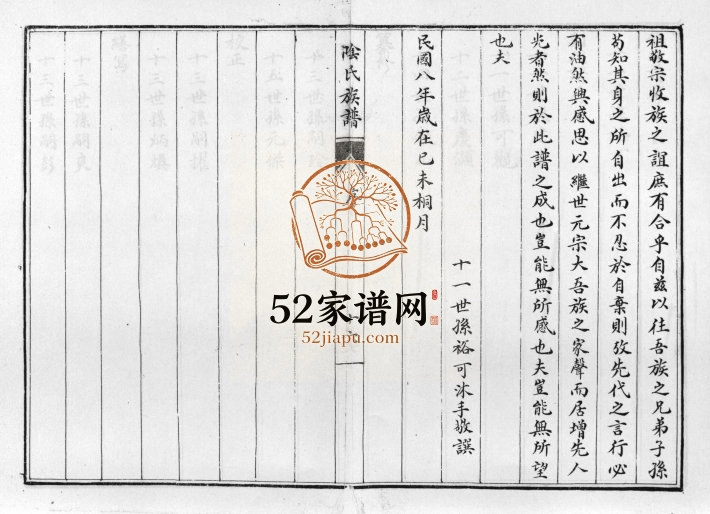 祖敬宗收族之誼庶有合乎自兹以往吾族之兄弟子孫
苟知其身之所自出而不忍於自棄則攷先代之言行必
有油然興感思以繼世元宗大吾族之家聲而居增先人
光者然則於此譜之成也豈能無所感也夫豈能無所望
也夫
民國八年歲在已未桐月
十一世孫裕可沐手敬譔
陰氏族譜
52家谱网
52jiapu.com